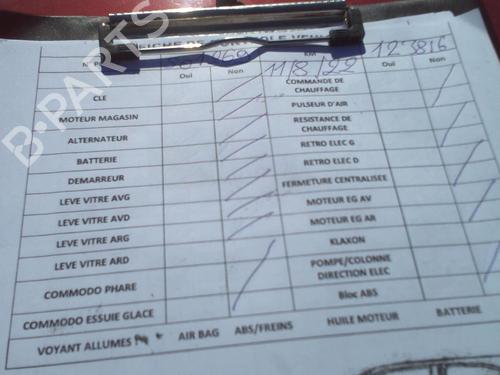 FICHE DE CONTROLE VEHI
N° P
KM
123816
Oui Non
11/8/22
Oui Non
CLE
COMMANDE DE CHAUFFAGE
MOTEUR MAGASIN
PULSEUR D'AIR
ALTERNATEUR
RESISTANCE DE CHAUFFAGE
BATTERIE
RETRO ELEC G
DEMARREUR
RETRO ELEC D
LEVE VITRE AVG
FERMETURE CENTRALISEE
LEVE VITRE AVD
MOTEUR EG AV
LEVE VITRE ARG
MOTEUR EG AR
LEVE VITRE ARD
KLAXON
COMMODO PHARE
POMPE/COLONNE DIRECTION ELEC
COMMODO ESSUIE GLACE
Bloc ABS
VOYANT ALLUMES
AIR BAG
ABS/FREINS
HUILE MOTEUR
BATTERIE
B-PARTS